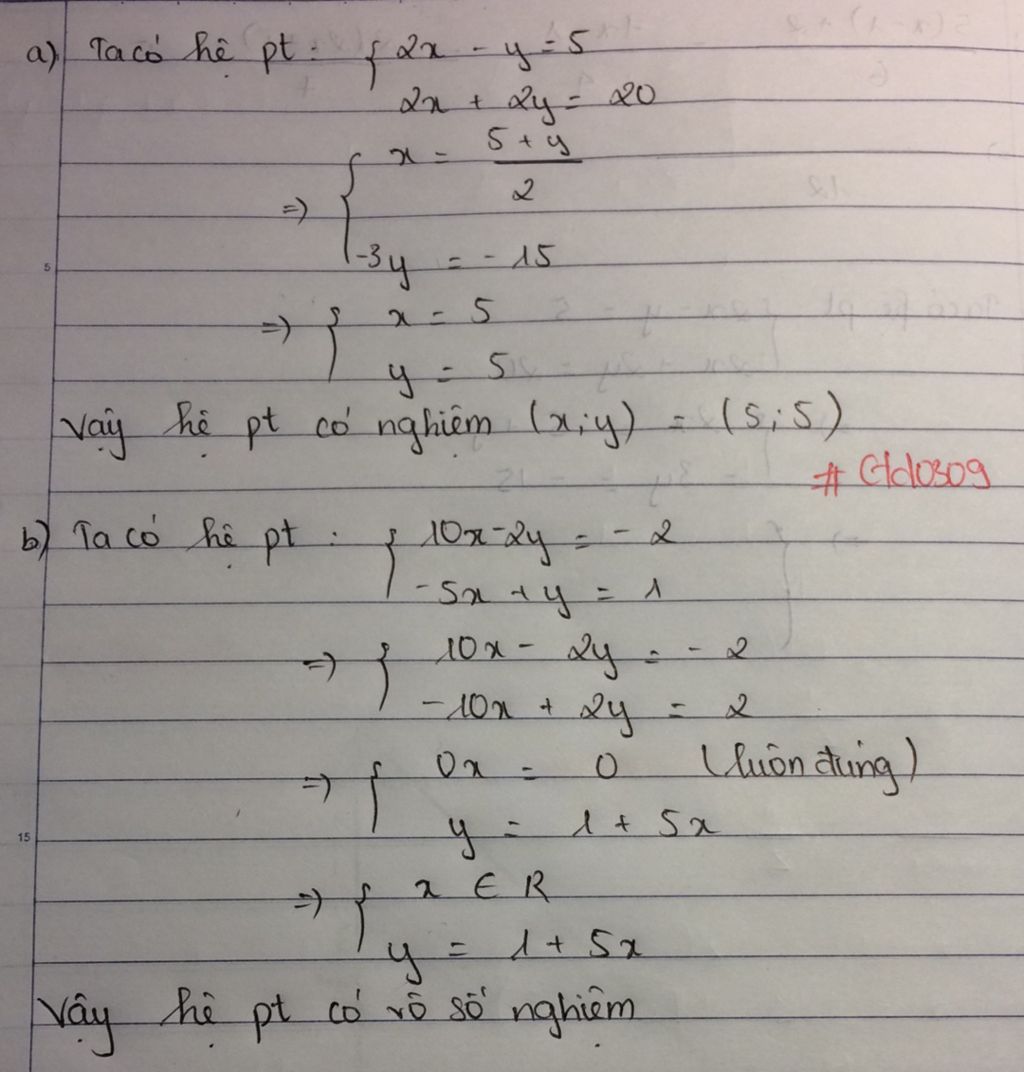 a) Ta có hệ pt : { 2x - y = 5
2x + 2y = 20
=> { x = (5 + y)/2
-3y = -15
=> { x = 5
y = 5
Vậy hệ pt có nghiệm (x;y) = (5;5)
b) Ta có hệ pt : { 10x - 2y = - 2
-5x + y = 1
=> { 10x - 2y = - 2
-10x + 2y = 2
=> { 0x = 0 (luôn đúng)
y = 1 + 5x
=> { x ∈ R
y = 1 + 5x
Vậy hệ pt có vô số nghiệm
5
15